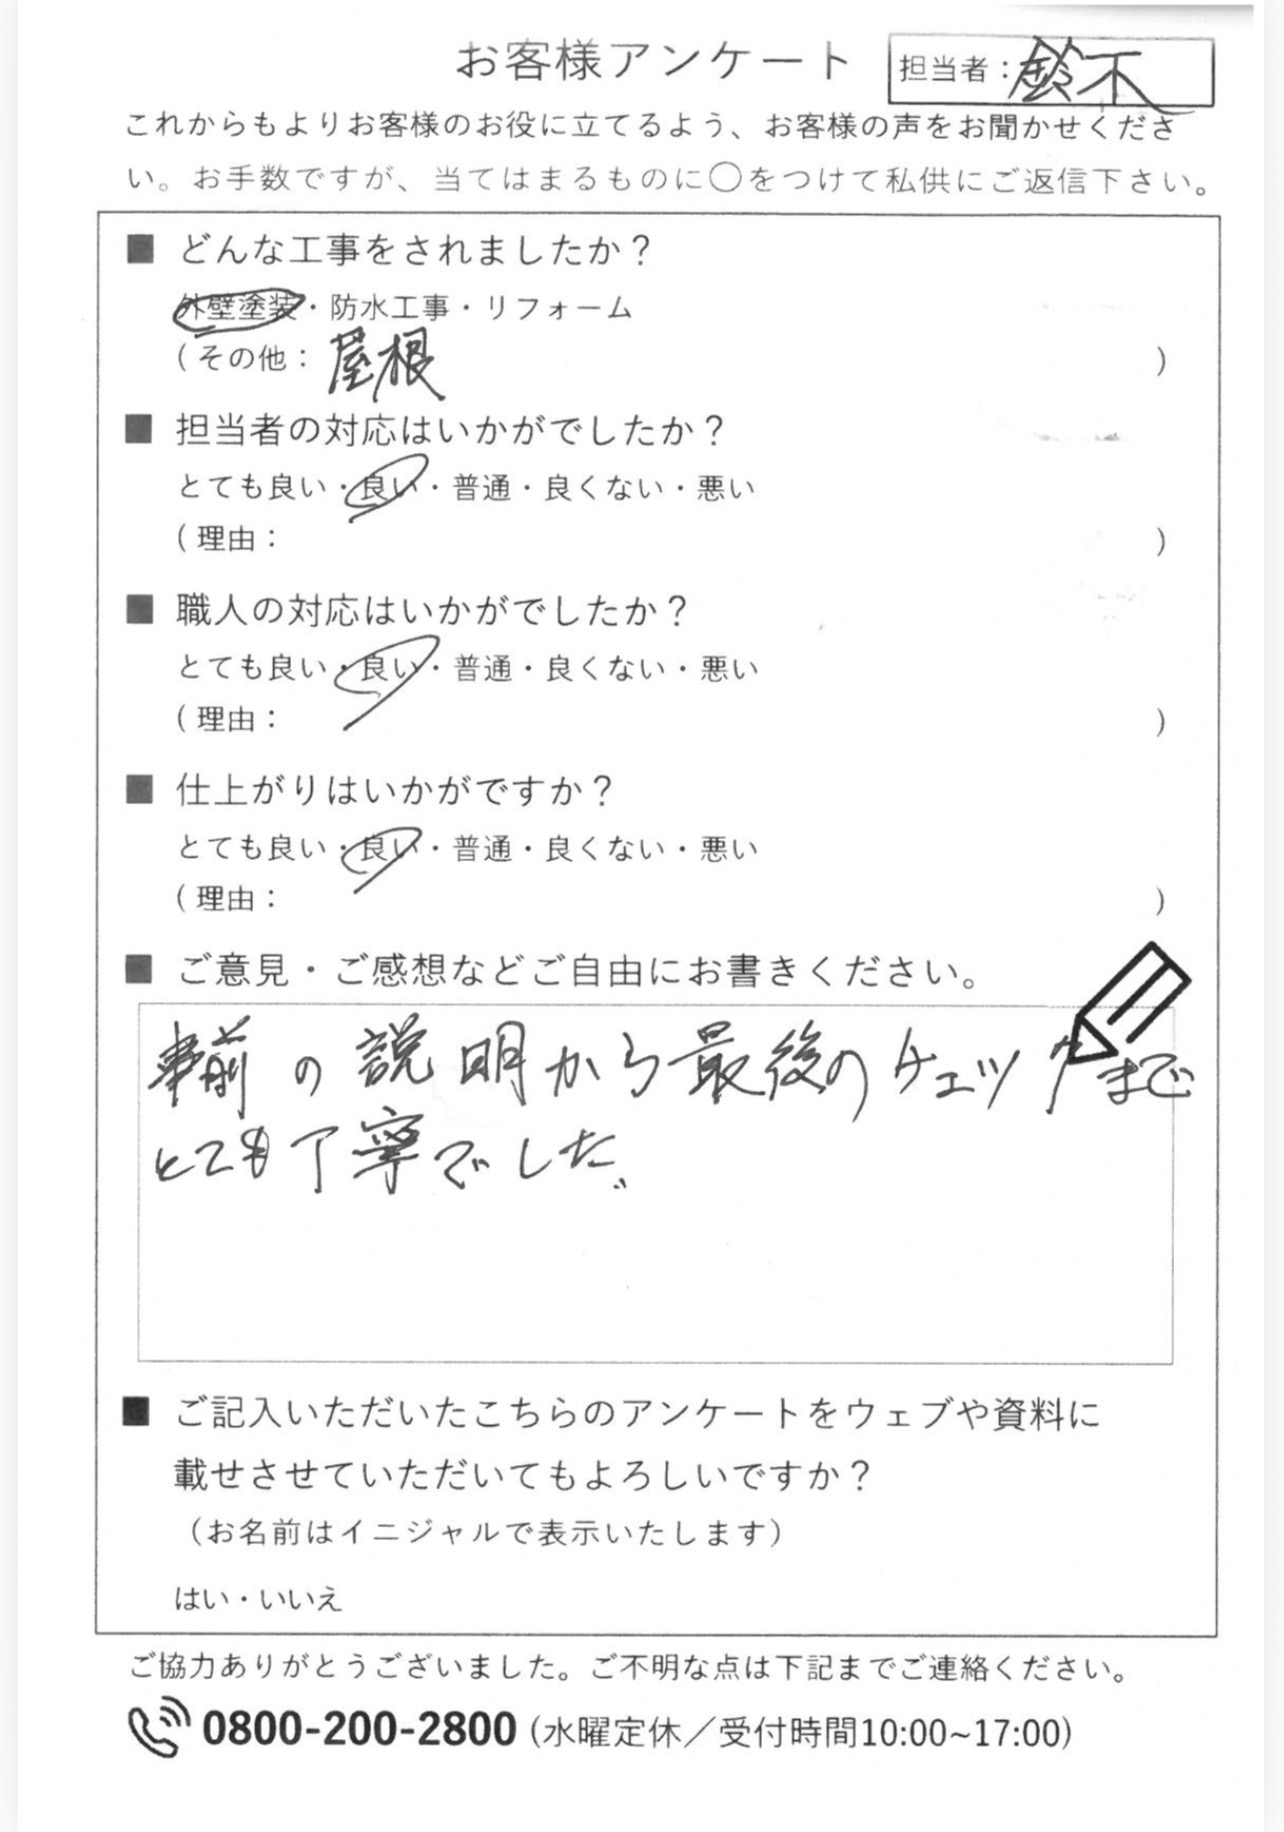 お客様アンケート
担当者：鈴木
これからもよりお客様のお役に立てるよう、お客様の声をお聞かせくださ
い。お手数ですが、当てはまるものに〇をつけて私供にご返信下さい。
■ どんな工事をされましたか？
外壁塗装・防水工事・リフォーム
(その他：屋根)
■ 担当者の対応はいかがでしたか？
とても良い・良い・普通・良くない・悪い
(理由：)
■ 職人の対応はいかがでしたか？
とても良い・良い・普通・良くない・悪い
(理由：)
■ 仕上がりはいかがですか？
とても良い・良い・普通・良くない・悪い
(理由：)
■ ご意見・ご感想などご自由にお書きください。
事前の説明から最後のチェックまで
とても丁寧でした。
■ ご記入いただいたこちらのアンケートをウェブや資料に
載せさせていただいてもよろしいですか？
（お名前はイニジャルで表示いたします）
はい・いいえ
ご協力ありがとうございました。ご不明な点は下記までご連絡ください。
0800-200-2800 (水曜定休／受付時間10:00~17:00)